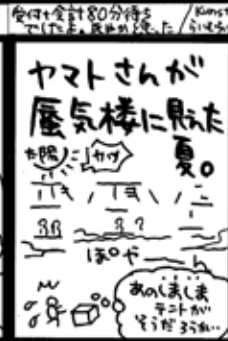 受付+会計80分待ち
でしたよ。
ヤマトさんが
蜃気楼に見えた
夏。
太陽
カッ
ほわ〜
あのしましま
テントが
そうだろうか…